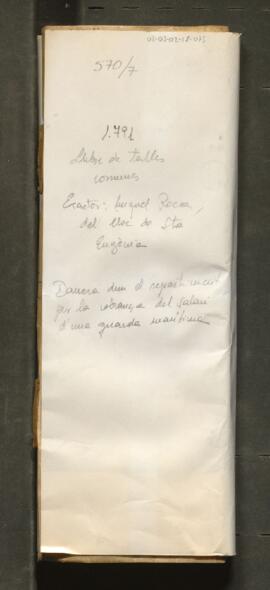 02-02-02-18-073
570/7
1.791
Llibre de talles
comunes
Exactor: Miquel Rocca,
del lloc de Sta
Eugènia
Darrera duu el repartiment
per la cobrança del salari
d'una guarda marítima